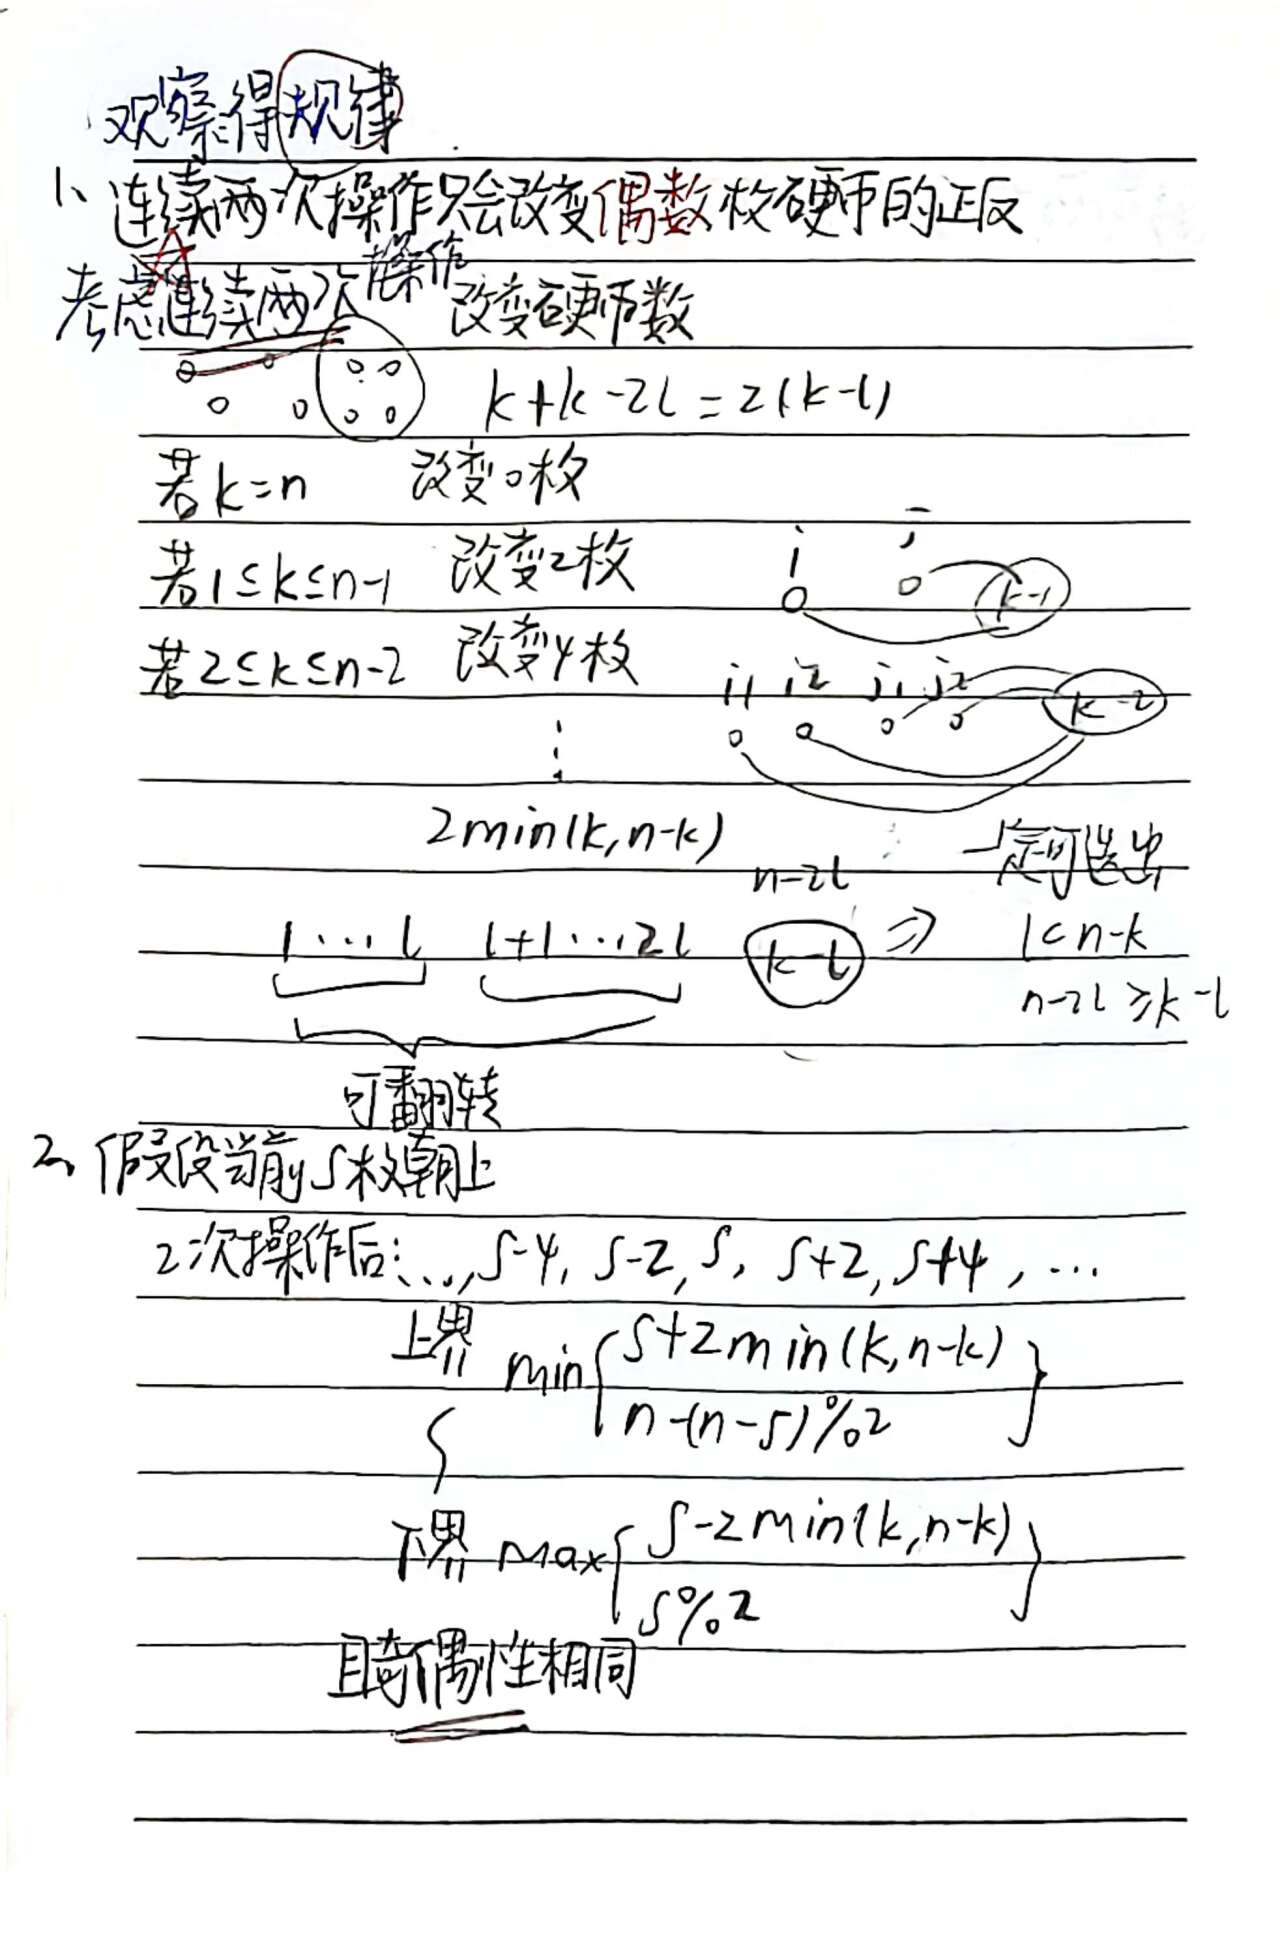 观察得规律
1、连续两次操作只会改变偶数枚硬币的正反
考虑连续两次操作改变硬币数
k+k-2l=2(k-l)
若k=n 改变0枚
若1≤k≤n-1 改变2枚 i j k-1
若2≤k≤n-2 改变4枚 i1 i2 j1 j2 k-2
2min(k,n-k)
n-2l 一定可选出
1...l l+1...2l k-l ⇒ l≤n-k
n-2l≥k-l
可翻转
2、假设当前S枚朝上
2次操作后:..., S-4, S-2, S, S+2, S+4, ...
上界 min{S+2min(k,n-k)
n-(n-S)%2}
下界 max{S-2min(k,n-k)
S%2}
且奇偶性相同